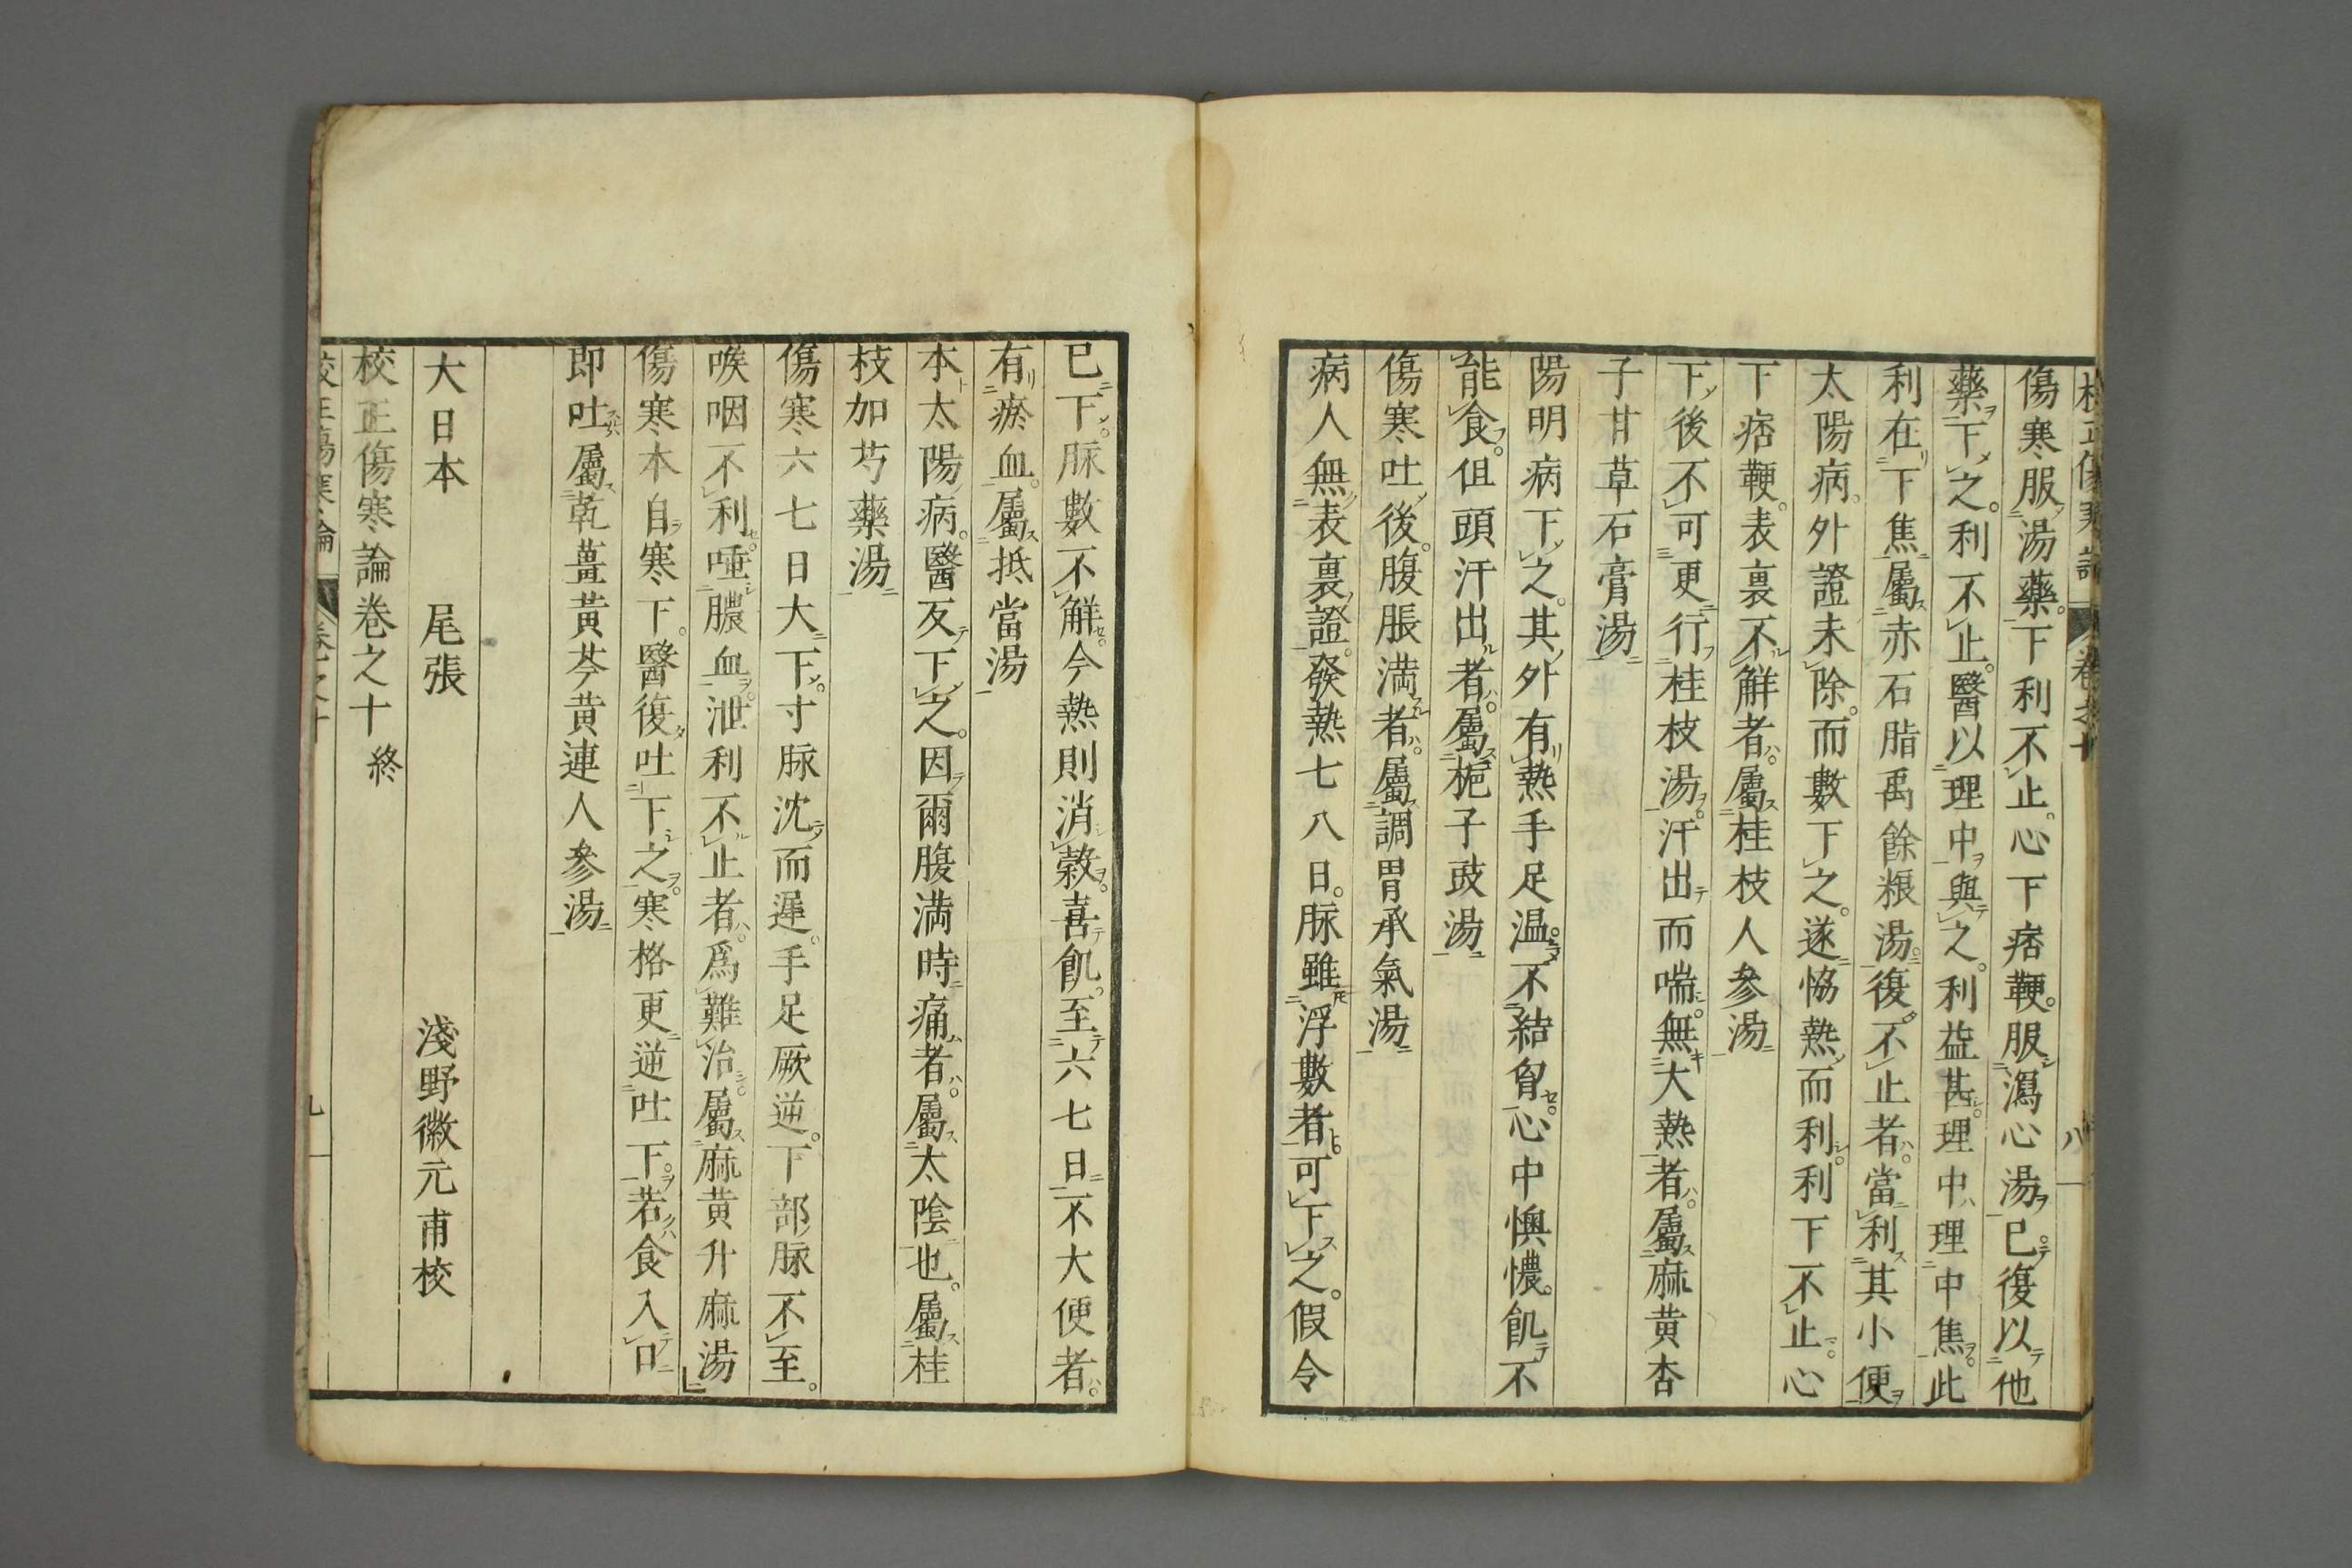 傷寒服湯藥。下利不止。心下痞鞕。服瀉心湯已。復以他
藥下之。利不止。醫以理中與之。利益甚。理中理中焦。此
利在下焦。屬赤石脂禹餘粮湯。復不止者。當利其小便
太陽病。外證未除。而數下之。遂恊熱而利。利下不止。心
下痞鞕。表裏不解者。屬桂枝人參湯
下後不可更行桂枝湯。汗出而喘。無大熱者。屬麻黄杏
子甘草石膏湯
陽明病下之。其外有熱手足温。不結胷。心中懊憹。飢不
能食。但頭汗出者。屬梔子豉湯
傷寒吐後。腹脹満者。屬調胃承氣湯
病人無表裏證。發熱七八日。脉雖浮數者。可下之。假令
已下。脉數不解。今熱則消穀喜飢。至六七日不大便者。
有瘀血。屬抵當湯
本太陽病。醫反下之。因爾腹満時痛者。屬太陰也。屬桂
枝加芍藥湯
傷寒六七日大下。寸脉沈而遲。手足厥逆。下部脉不至。
喉咽不利。唾膿血。泄利不止者。爲難治。屬麻黄升麻湯
傷寒本自寒下。醫復吐下之。寒格更逆吐下。若食入口
即吐屬乾薑黄芩黄連人參湯
大日本 尾張 淺野徽元甫校
校正傷寒論巻之十 終